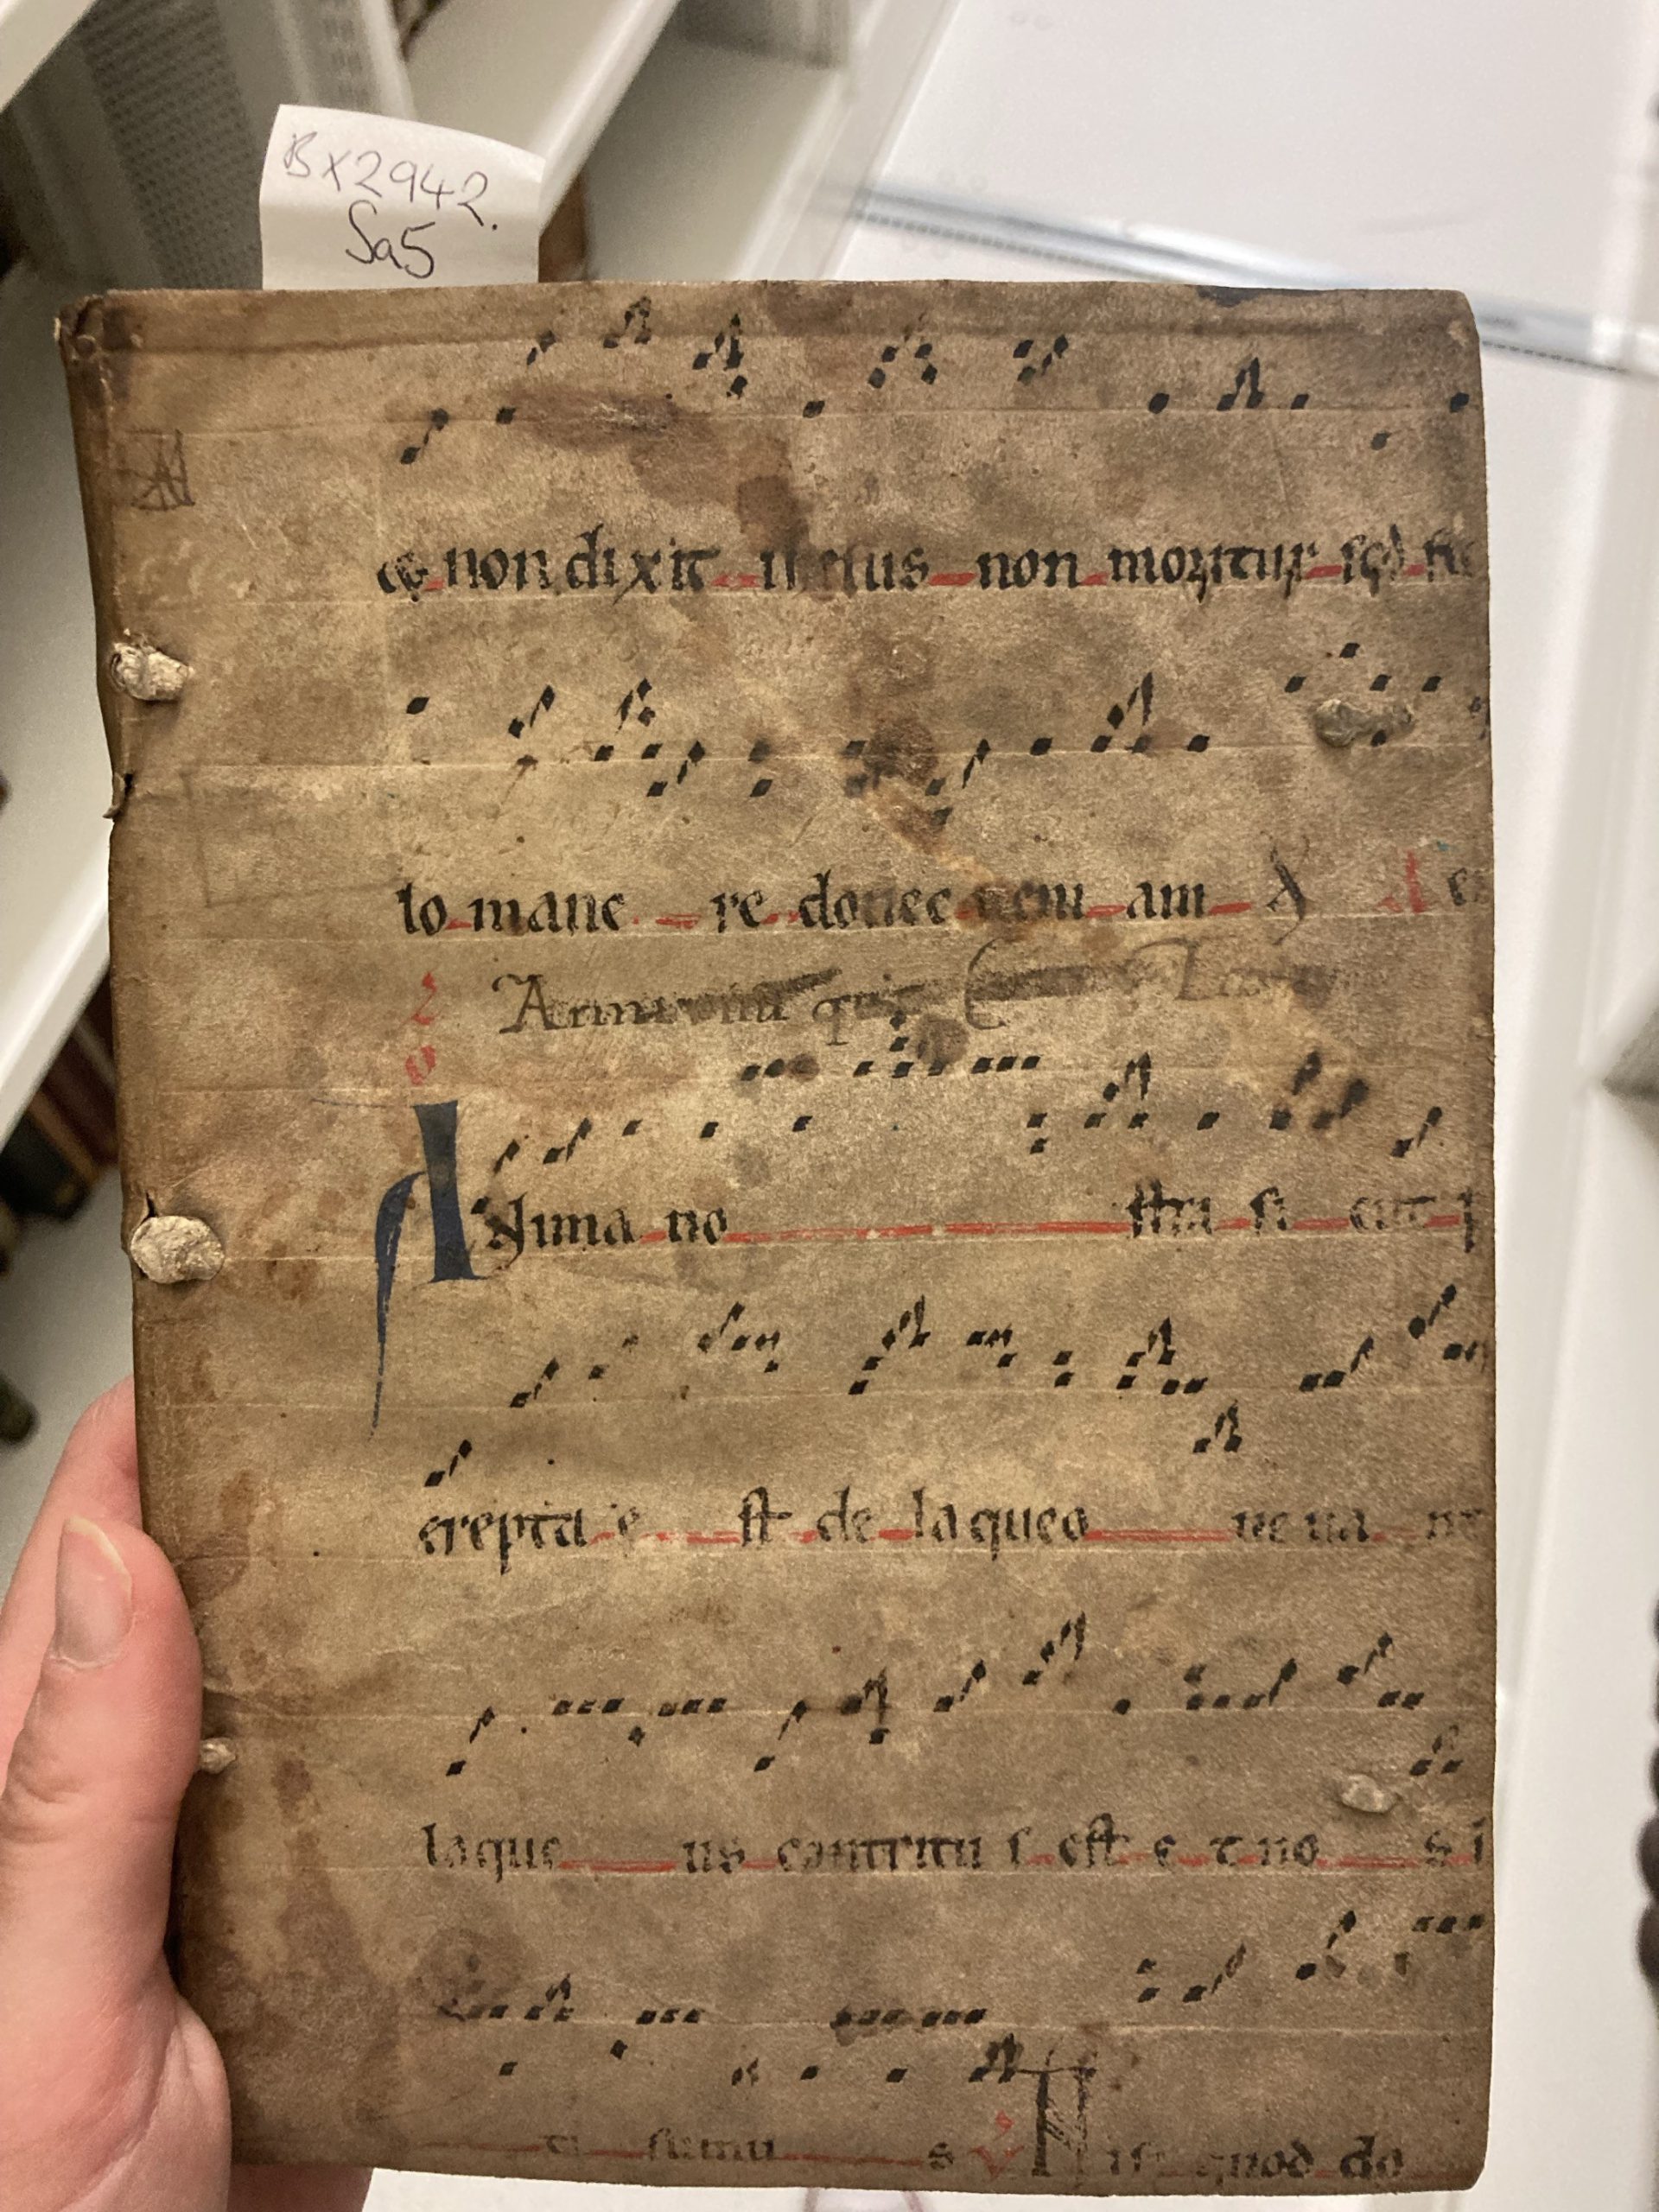 BX2942.
Sa5
non dixit ihesus non moritur sed
lo mane re donec ueni am
Anima no stra si cut
erepta e st de laqueo ue na
laque us contritu s est e t no s
ti sumu s N isi quod do